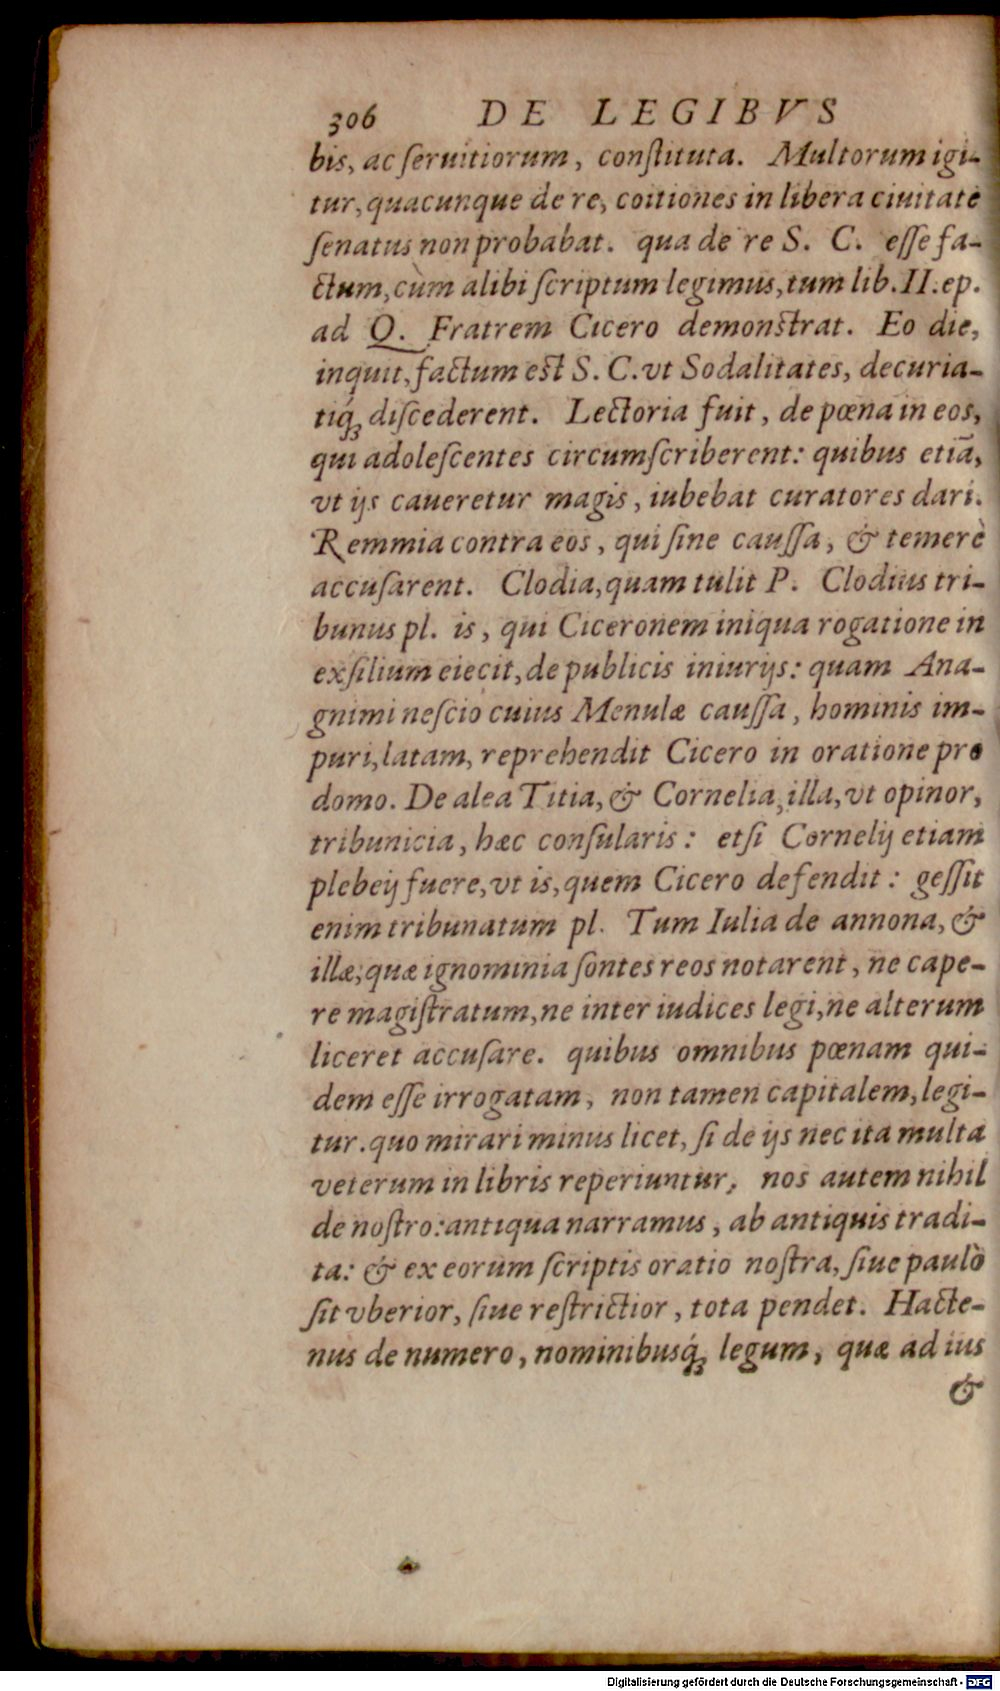 306 DE LEGIBVS
bis, ac ſeruitiorum, conſtituta. Multorum igi-
tur, quacunque de re, coitiones in libera ciuitate
ſenatus non probabat. qua de re S. C. eſſe fa-
ctum, cùm alibi ſcriptum legimus, tum lib. II. ep.
ad Q. Fratrem Cicero demonſtrat. Eo die,
inquit, factum eſt S. C. vt Sodalitates, decuria-
tiq́; diſcederent. Lectoria fuit, de pœna in eos,
qui adoleſcentes circumſcriberent: quibus etiā,
vt ijs caueretur magis, iubebat curatores dari.
Remmia contra eos, qui ſine cauſſa, & temerè
accuſarent. Clodia, quam tulit P. Clodius tri-
bunus pl. is, qui Ciceronem iniqua rogatione in
exſilium eiecit, de publicis iniurijs: quam Ana-
gnimi neſcio cuius Menulæ cauſſa, hominis im-
puri, latam, reprehendit Cicero in oratione pro
domo. De alea Titia, & Cornelia, illa, vt opinor,
tribunicia, hæc conſularis: etſi Cornelij etiam
plebeij fuere, vt is, quem Cicero defendit: geſſit
enim tribunatum pl. Tum Iulia de annona, &
illæ, quæ ignominia ſontes reos notarent, ne cape-
re magiſtratum, ne inter iudices legi, ne alterum
liceret accuſare. quibus omnibus pœnam qui-
dem eſſe irrogatam, non tamen capitalem, legi-
tur. quo mirari minus licet, ſi de ijs nec ita multa
veterum in libris reperiuntur, nos autem nihil
de noſtro: antiqua narramus, ab antiquis tradi-
ta: & ex eorum ſcriptis oratio noſtra, ſiue paulò
ſit vberior, ſiue reſtrictior, tota pendet. Hacte-
nus de numero, nominibusq́; legum, quæ ad ius
&
Digitalisierung gefördert durch die Deutsche Forschungsgemeinschaft - DFG